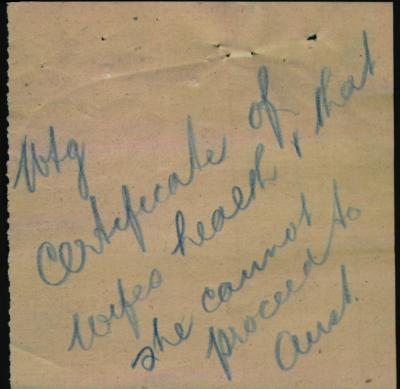 Wtg
Certificate of
wifes health, that
she cannot
proceed to
Aust.